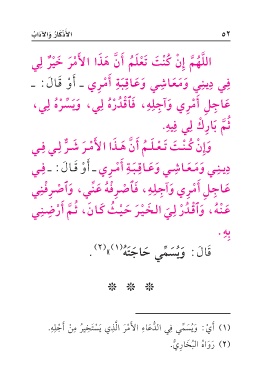 ٥٢ الأَذْكَارُ وَالآدَابُ
اللَّهُمَّ إِنْ كُنْتَ تَعْلَمُ أَنَّ هَذَا الأَمْرَ خَيْرٌ لِي
فِي دِينِي وَمَعَاشِي وَعَاقِبَةِ أَمْرِي ـ أَوْ قَالَ: ـ
عَاجِلِ أَمْرِي وَآجِلِهِ، فَٱقْدُرْهُ لِي، وَيَسِّرْهُ لِي،
ثُمَّ بَارِكْ لِي فِيهِ.
وَإِنْ كُنْتَ تَعْلَمُ أَنَّ هَذَا الأَمْرَ شَرٌّ لِي فِي
دِينِي وَمَعَاشِي وَعَاقِبَةِ أَمْرِي ـ أَوْ قَالَ: ـ فِي
عَاجِلِ أَمْرِي وَآجِلِهِ، فَٱصْرِفْهُ عَنِّي، وَٱصْرِفْنِي
عَنْهُ، وَٱقْدُرْ لِيَ الخَيْرَ حَيْثُ كَانَ، ثُمَّ أَرْضِنِي
بِهِ.
قَالَ: وَيُسَمِّي حَاجَتَهُ(١)»(٢).
* * *
(١) أَيْ: وَيُسَمِّي فِي الدُّعَاءِ الأَمْرَ الَّذِي يَسْتَخِيرُ مِنْ أَجْلِهِ.
(٢) رَوَاهُ البُخَارِيُّ.